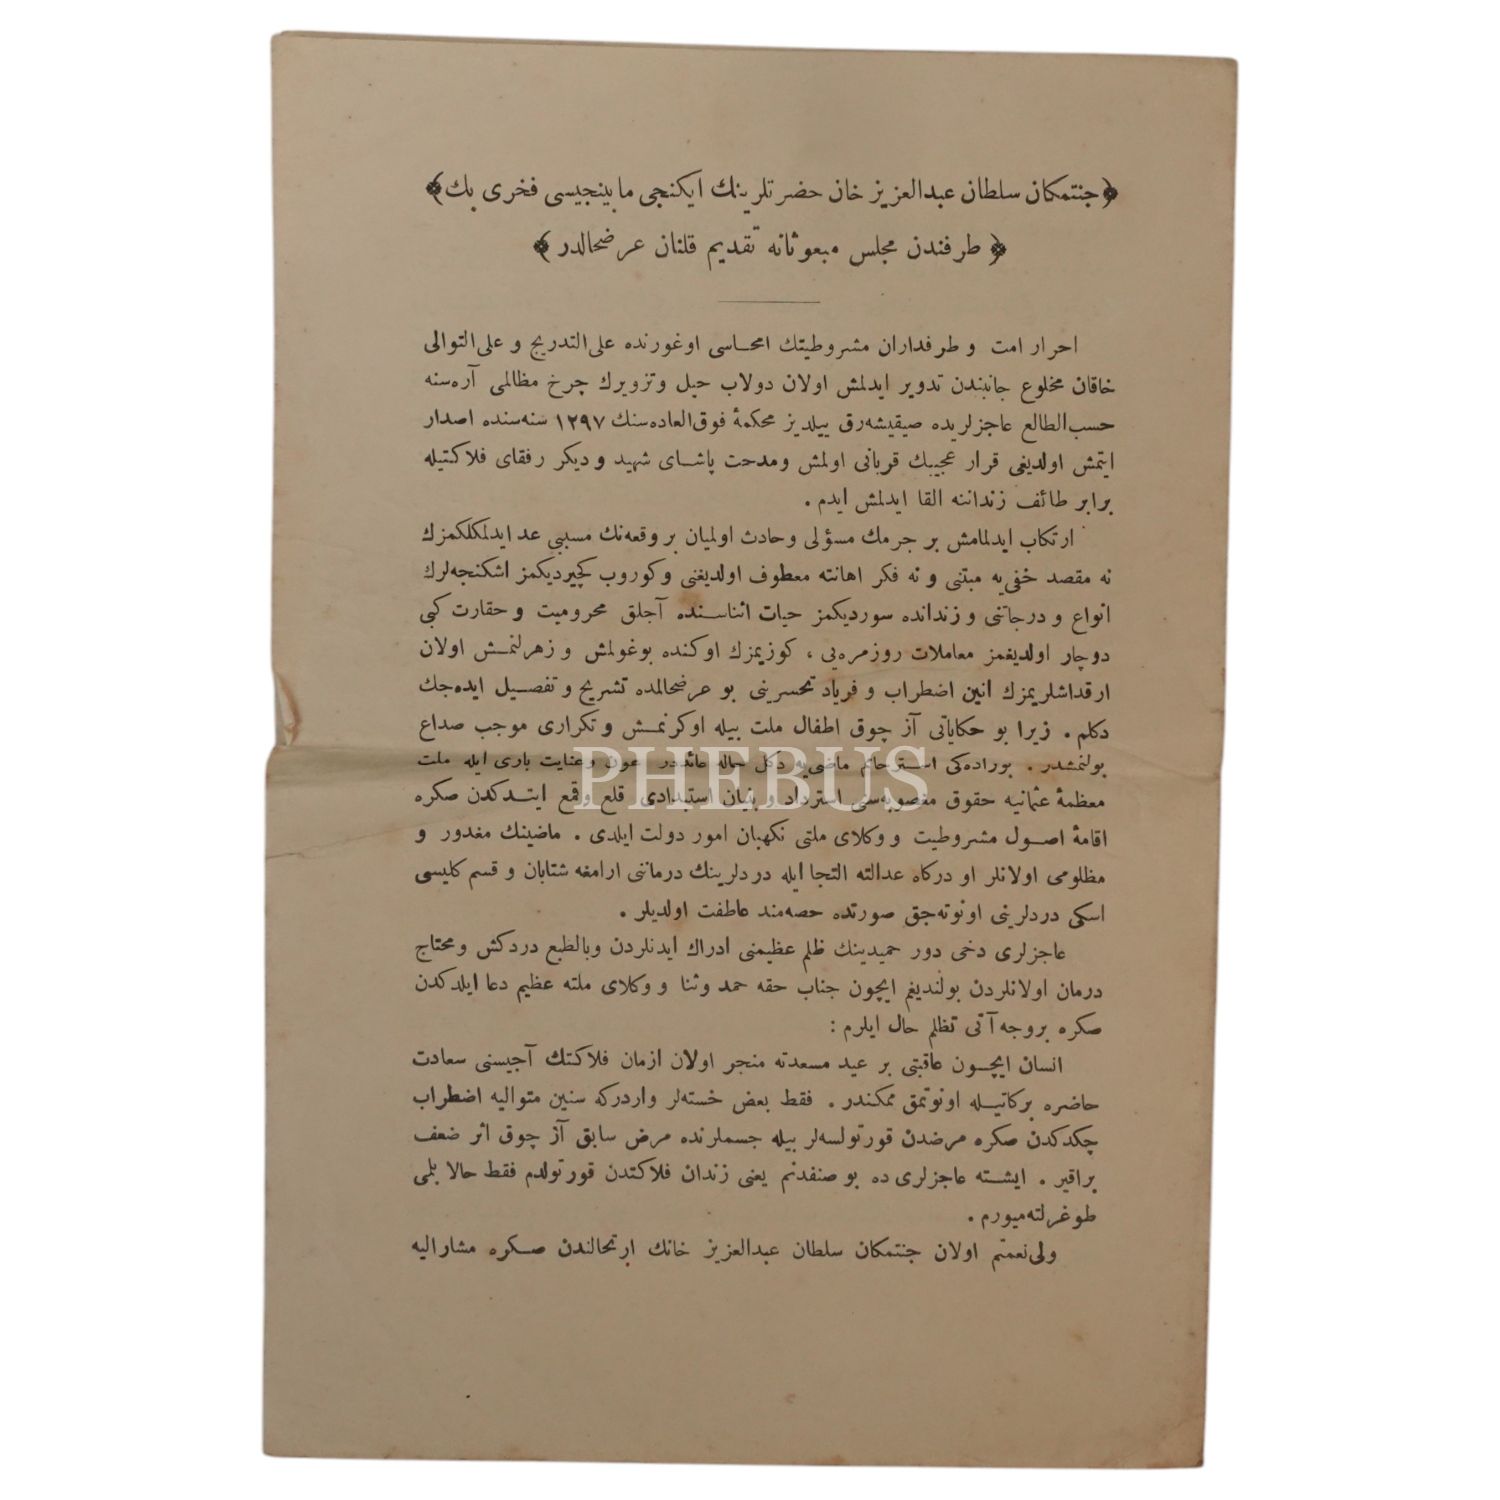 ﴿ جنتمكان سلطان عبدالعزيز خان حضرتلرينك ايكنجى مابينجيسى فخرى بك ﴾
﴿ طرفندن مجلس مبعوثانه تقديم قلنان عرضحالدر ﴾
احرار امت و طرفداران مشروطيتك امحاسى اوغورنده على‌التدريج و على‌التوالى
خاقان مخلوع جانبندن تدوير ايدلمش اولان دولاب حيل وتزويرك چرخ مظالمى آره‌سنه
حسب‌الطالع عاجزلريده صيقيشه‌رق ييلديز محكمۀ فوق‌العاده‌سنك ١٢٩٧ سنه‌سنده اصدار
ايتمش اولديغى قرار عجيبك قربانى اولمش ومدحت پاشاى شهيد و ديكر رفقاى فلاكتيله
برابر طائف زنداننه القا ايدلمش ايدم .
ارتكاب ايدلمامش بر جرمك مسؤلى وحادث اولميان بر وقعه‌نك مسببى عد ايدلمكلكمزك
نه مقصد خفى‌يه مبتنى و نه فكر اهانته معطوف اولديغنى و كوروب كچيرديكمز اشكنجه‌لرك
انواع و درجاتنى و زندانده سورديكمز حيات اثناسنده آجلق محروميت و حقارت كبى
دوچار اولديغمز معاملات روزمره‌يى ، كوزيمزك اوكنده بوغولمش و زهرلنمش اولان
ارقداشلريمزك انين اضطراب و فرياد تحسرينى بو عرضحالمده تشريح و تفصيل ايده‌جك
دكلم . زيرا بو حكاياتى آز چوق اطفال ملت بيله اوكرنمش و تكرارى موجب صداع
بولنمشدر . بوراده‌كى استرحام ماضى‌يه دكل حاله عائددر عون وعنايت بارى ايله ملت
معظمۀ عثمانيه حقوق مغصوبه‌سنى استرداد و بنيان استبدادى قلع وقمع ايتدكدن صكره
اقامۀ اصول مشروطيت و وكلاى ملتى نكهبان امور دولت ايلدى . ماضينك مغدور و
مظلومى اولانلر او دركاه عدالته التجا ايله دردلرينك درماننى ارامغه شتابان و قسم كليسى
اسكى دردلرينى اونوته‌جق صورتده حصه‌مند عاطفت اولديلر .
عاجزلرى دخى دور حميدينك ظلم عظيمنى ادراك ايدنلردن وبالطبع دردكش ومحتاج
درمان اولانلردن بولنديغم ايچون جناب حقه حمد وثنا و وكلاى ملته عظيم دعا ايلدكدن
صكره بروجه آتى تظلم حال ايلرم :
انسان ايچون عاقبتى بر عيد مسعدته منجر اولان ازمان فلاكتك آجيسنى سعادت
حاضره بركاتيله اونوتمق ممكندر . فقط بعض خسته‌لر واردركه سنين متواليه اضطراب
چكدكدن صكره مرضدن قورتولسه‌لر بيله جسملرنده مرض سابق آز چوق اثر ضعف
براقير . ايشته عاجزلرى ده بو صنفدنم يعنى زندان فلاكتدن قورتولدم فقط حالا بلى
طوغرلته‌ميورم .
ولى‌نعمتم اولان جنتمكان سلطان عبدالعزيز خانك ارتحالندن صكره مشاراليه
PHEBUS